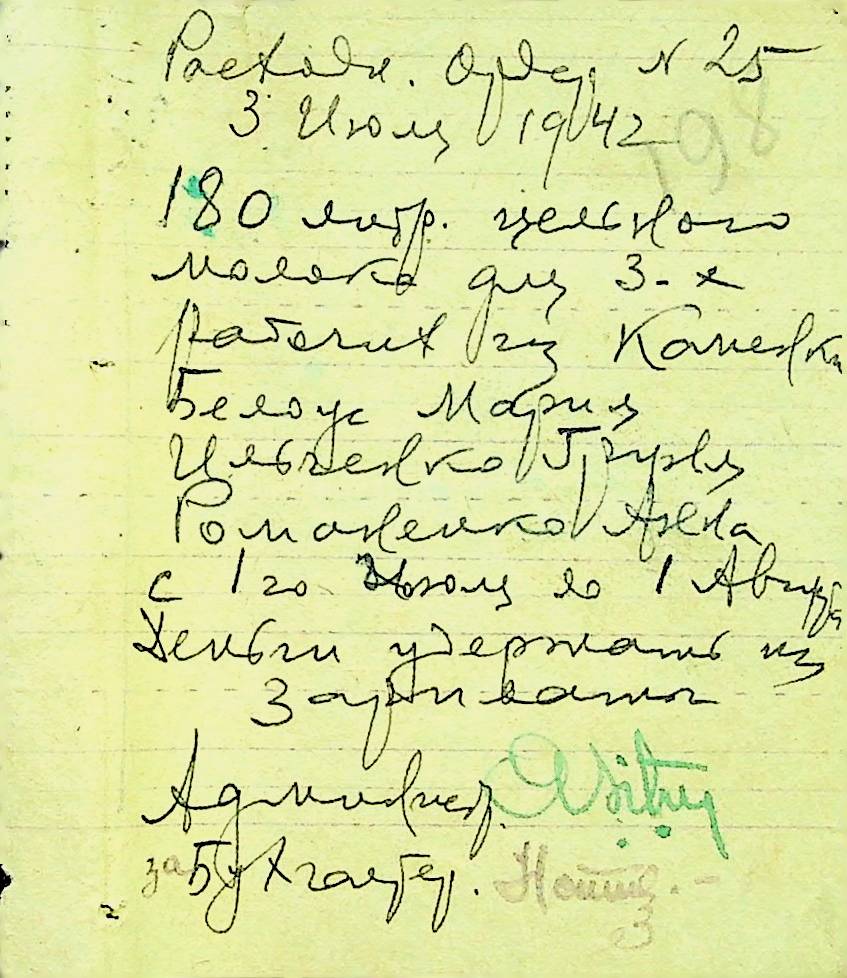 Расходн. Ордер. N 25
3 Июля 1942
198
180 литр. цельного
молока для 3-х
рабочих из Каменки
Белоус Мария
Ильченко Груня
Романенко Анна
с 1го Июля по 1 Август
Деньги удержать из
Зарплаты
Администр.
за Бухгалтер.